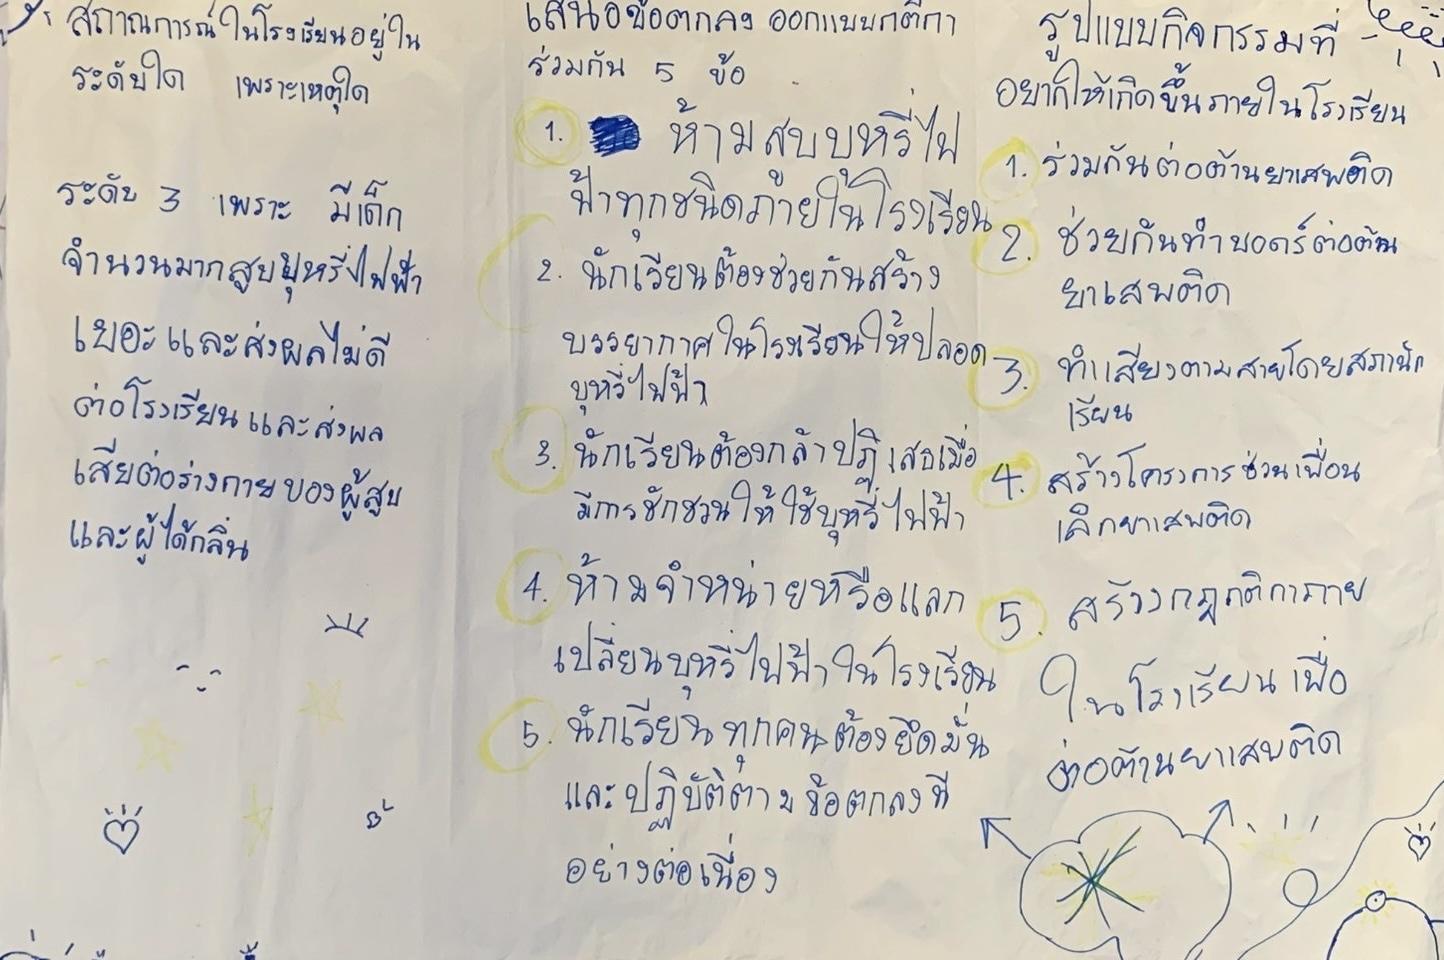 สถาณการณ์ในโรงเรียนอยู่ใน
ระดับใด เพราะเหตุใด
ระดับ 3 เพราะ มีเด็ก
จำนวนมากสูบบุหรี่ไฟฟ้า
เยอะและส่งผลไม่ดี
ต่อโรงเรียนและส่งผล
เสียต่อร่างกายของผู้สูบ
และผู้ได้กลิ่น
เสนอข้อตกลง ออกแบบกติกา
ร่วมกัน 5 ข้อ
1. ห้ามสูบบุหรี่ไฟ
ฟ้าทุกชนิดภายในโรงเรียน
2. นักเรียนต้องช่วยกันสร้าง
บรรยากาศในโรงเรียนให้ปลอด
บุหรี่ไฟฟ้า
3. นักเรียนต้องกล้าปฏิเสธเมื่อ
มีการชักชวนให้ใช้บุหรี่ไฟฟ้า
4. ห้ามจำหน่ายหรือแลก
เปลี่ยนบุหรี่ไฟฟ้าในโรงเรียน
5. นักเรียนทุกคนต้องยึดมั่น
และปฏิบัติตามข้อตกลงนี้
อย่างต่อเนื่อง
รูปแบบกิจกรรมที่
อยากให้เกิดขึ้นภายในโรงเรียน
1. ร่วมกันต่อต้านยาเสพติด
2. ช่วยกันทำบอดร์ต่อต้าน
ยาเสพติด
3. ทำเสียงตามสายโดยสภานัก
เรียน
4. สร้างโครงการช่วนเพื่อน
เลิกยาเสพติด
5. สร้างกฎกติกาภาย
ในโรงเรียนเพื่อ
ต่อต้านยาเสพติด